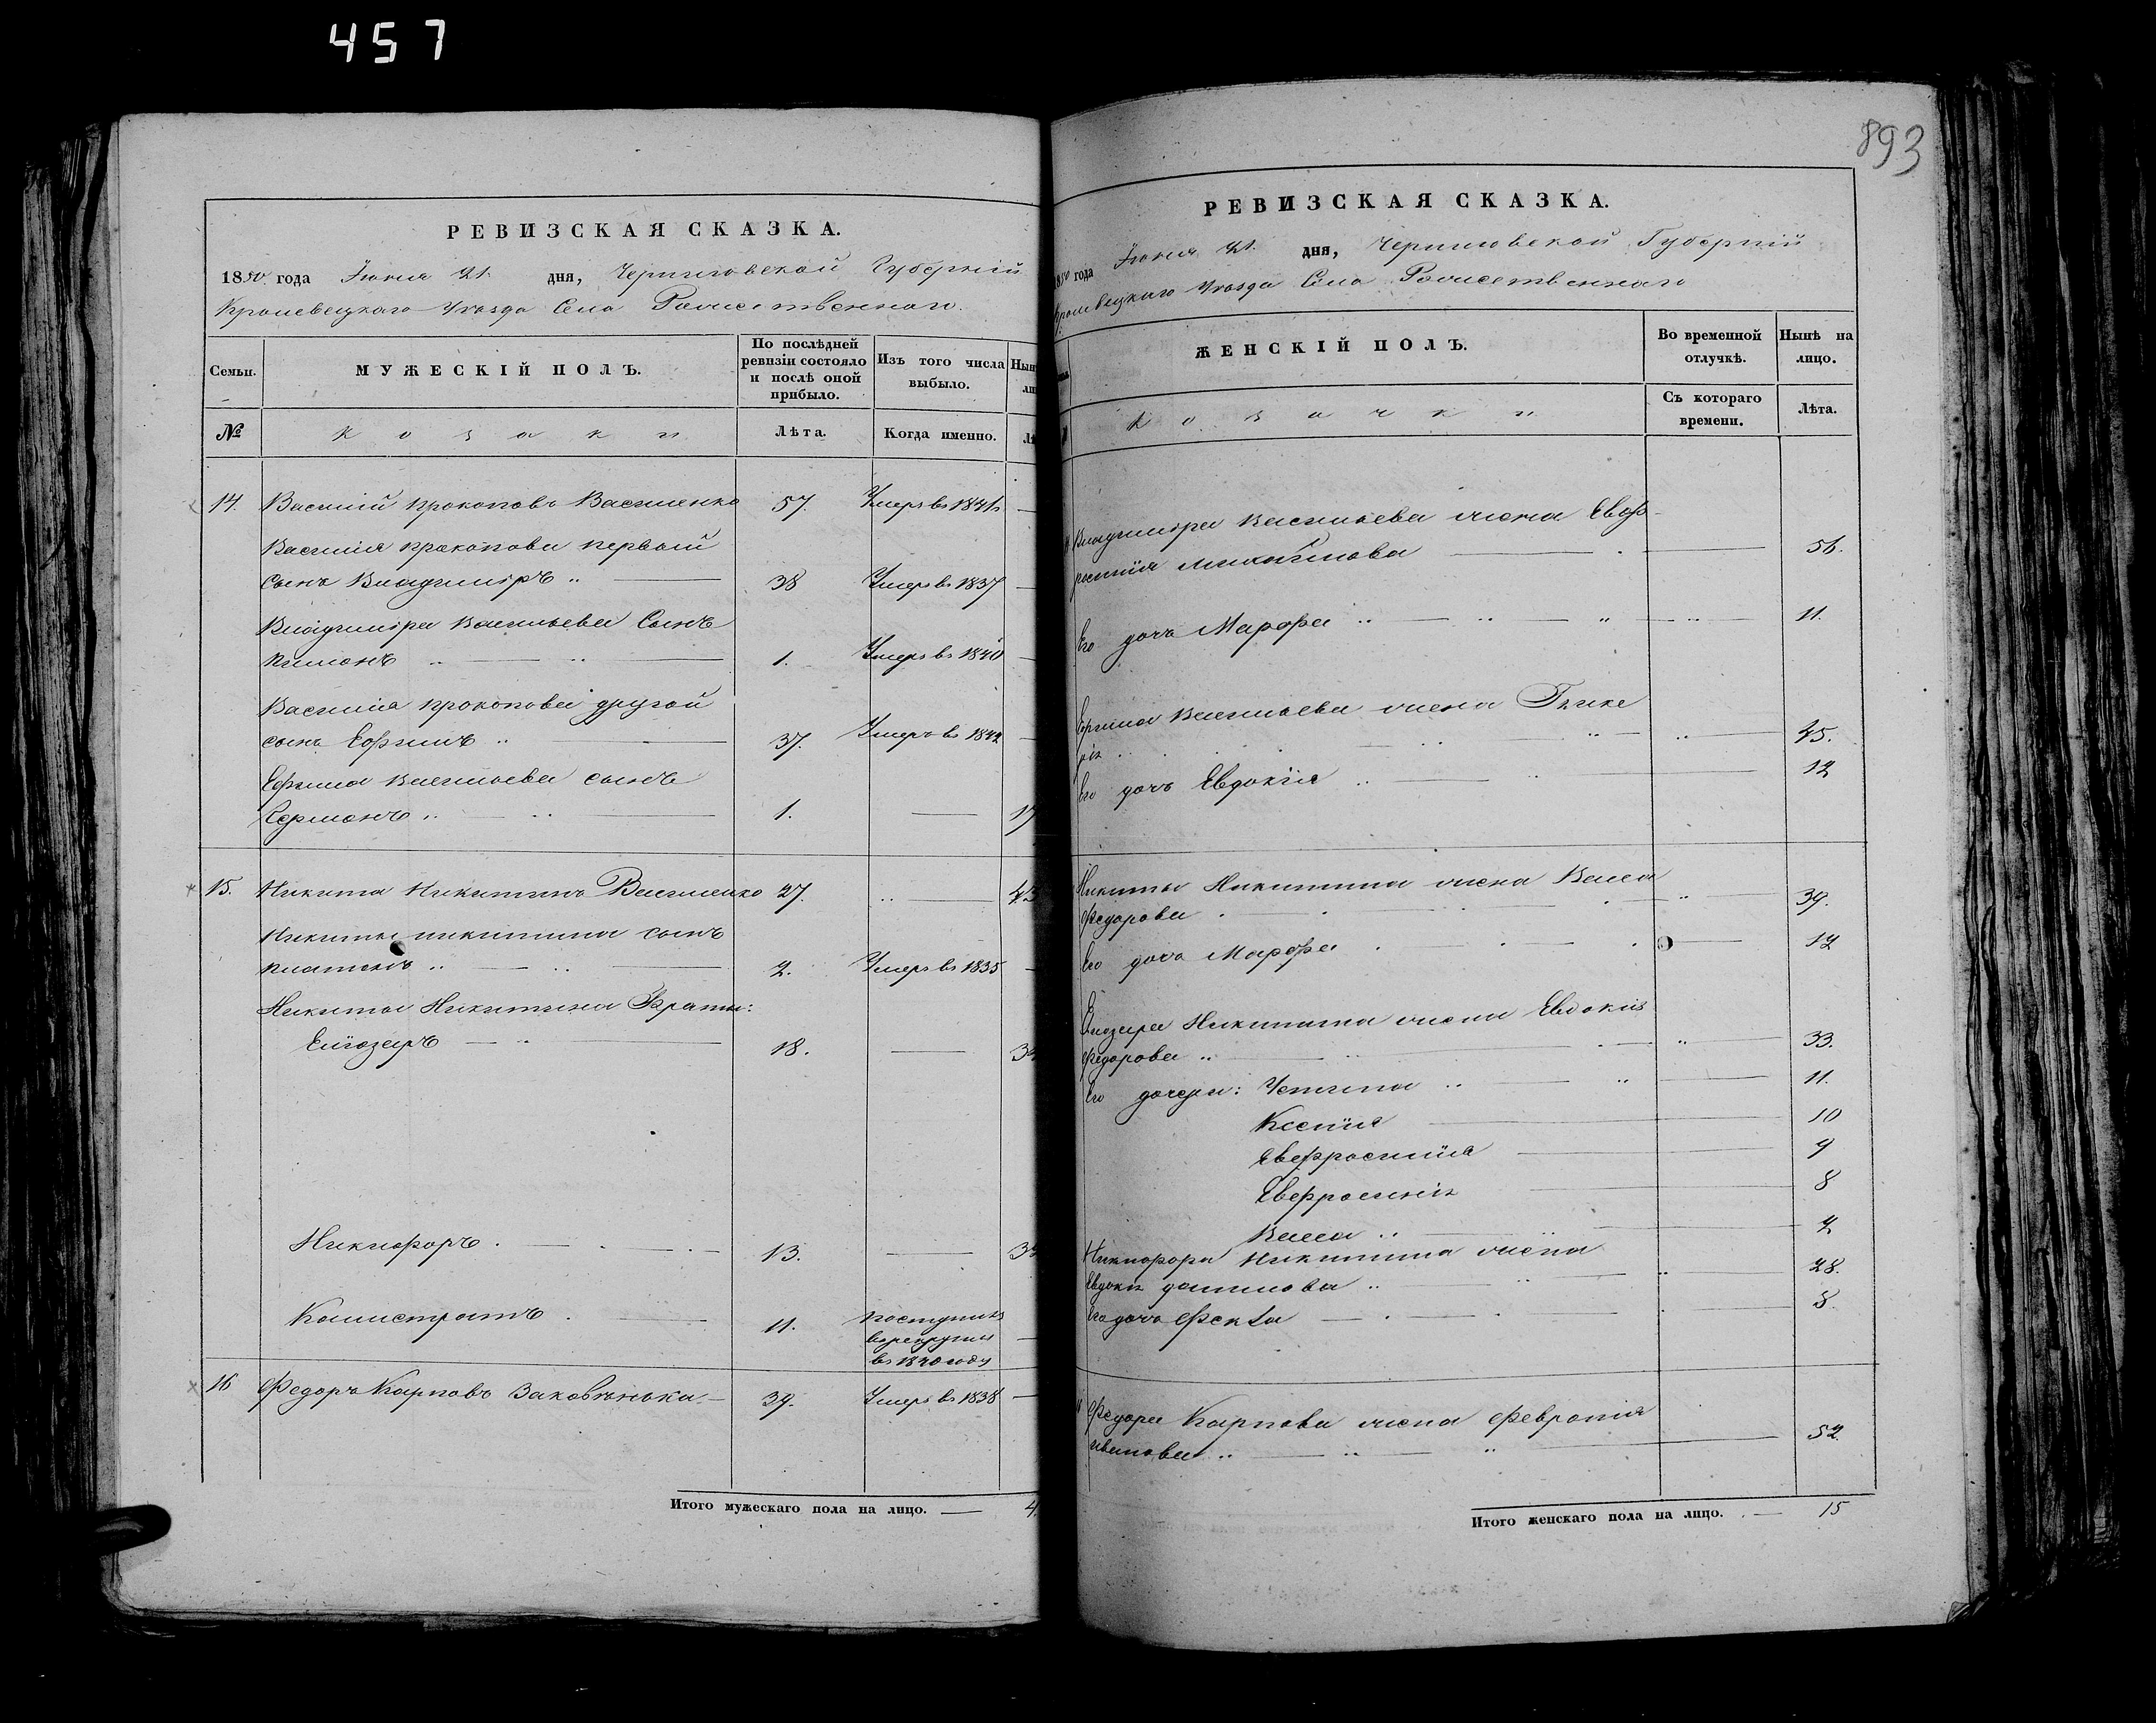 457
РЕВИЗСКАЯ СКАЗКА.
1850 года Іюня 21. дня, Черниговской Губерніи
Кролевецкаго Уѣзда Села Рожественнаго.
Семьи.
МУЖЕСКІЙ ПОЛЪ.
По послѣдней ревизіи состояло и послѣ оной прибыло.
Изъ того числа выбыло.
№
Козаки
Лѣта.
Когда именно.
14. Василій Прокоповъ Василенко 57. Умеръ въ 1841
Василія Прокопова первый
сынъ Владиміръ „ 38 Умеръ въ 1837
Владиміра Васильева Сынъ
Филимонъ 1. Умеръ въ 1840
Василія Прокопова другой
сынъ Ефимъ „ 37. Умеръ въ 1842
Ефима Васильева сынъ
Германъ „ 1. — 17
15. Никита Никитинъ Василенко 27. „ —
Никиты никитина сынъ
платонъ „ 2. Умеръ въ 1835
Никиты Никитина Браты:
Еліозаръ 18. —
Никифоръ 13. —
Калистратъ 11. поступилъ
въ рекруты
въ 1840 году
16 Федоръ Карповъ 39. Умеръ въ 1838
Итого мужескаго пола на лицо. — 4.
893
РЕВИЗСКАЯ СКАЗКА.
1850 года Іюня 21. дня, Черниговской Губерніи
Кролевецкаго Уѣзда Села Рожественнаго
ЖЕНСКІЙ ПОЛЪ.
Во временной отлучкѣ.
Нынѣ на лицо.
Козачки
Съ котораго времени.
Лѣта.
Владиміра Васильева жена Евф-
росинія Михайлова 56.
Его дочь Марфа „ 11.
Ефима Васильева жена Глике
рія 45.
Его дочь Евдокія 12
Никиты Никитина жена Васса
Федорова 39.
Его дочь Марфа 12
Елиозара Никитина жена Евдокія
Федорова „ 33.
Его дочери: Устина „ 11.
Ксенія 10
Евфросинія 9
Евфросинія 8
Васса „
Никифора Никитина жена
Евдокія данилова „ 28.
Его дочь Фекла 8.
Федора Карпова жена Февронія
иванова „ 52.
Итого женскаго пола на лицо. — 15